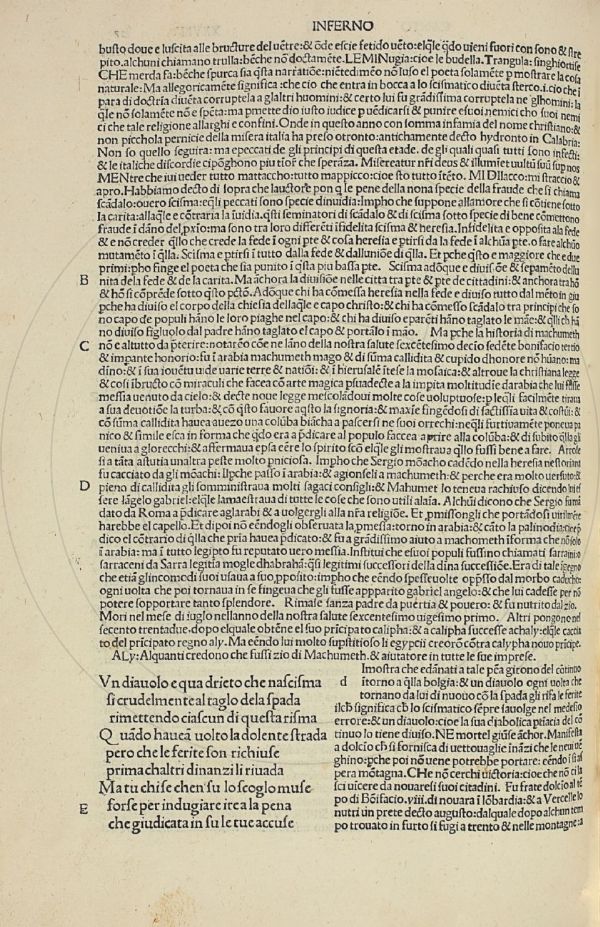 INFERNO
busto doue e luscita alle bructure del uẽtre: & õde escie fetido uẽto: elq̃le q̃do uieni fuori con sono & stre
pito. alchuni chiamano trulla: bẽche nõ doctamẽte. LE MINugia: cioe le budella. Trangula: singhiortisce
CHE merda fa: bẽche spurca sia q̃sta narratiõne: niẽtedimẽo nõ luso el poeta solamẽte p mostrare la cosa
naturale: Ma allegoricamẽte significa: che cio che entra in bocca a lo scismatico diuẽta sterco. i. cio che i
para di doctria diuẽta corruptela a glaltri huomini: & certo lui fu grãdissima corruptela ne glhomini: la
q̃le nõ solamẽte nõ e spẽta: ma pmette dio iusto iudice p uẽdicarsi & punire esuoi nemici cho suoi nemi
ci che tale religione allarghi e confini. Onde in questo anno con somma infamia del nome christiano: &
non picchola pernicie della misera italia ha preso otronto: antichamente decto hydronto in Calabria:
Non so quello seguira: ma epeccati de gli principi di questa etade. de gli quali quasi tutti sono infecti:
& le italiche discordie cipõghono piu tiõr che sperãza. Misereatur nr̃i deus & illumiet uultũ suũ sup nos
MENtre che iui ueder tutto mattaccho: tutto mappicco: cioe sto tutto itẽto. MI Dllacco: mi straccio &
apro. Habbiamo decto di sopra che lauctore pon q̃ le pene della nona specie della fraude che si chiama
scãdalo: ouero scisma: eq̃li peccati sono specie dinuidia: Impho che suppone allamore che si cõtiene sotto
la carita: allaq̃le e cõtraria la iuidia. q̃sti seminatori di scãdalo & di scisma sotto specie di bene cõmettono
fraude i dãno del pxio: ma sono tra loro differẽti ifidelita scisma & heresia. Infidelita e opposita ala fede
& e nõ creder q̃llo che crede la fede i ogni pte & cosa heresia e ptirsi da la fede i alchũa pte. o fare alchũo
mutamẽto i q̃lla. Scisma e ptirsi i tutto dalla fede & dalluniõne di q̃lla. Et pche q̃sto e maggiore che e due
primi: pho finge el poeta che sia punito i q̃sta piu bassa pte. Scisma adõque e diuisiõe & sepamẽto dellu
B nita dela fede & de la carita. Ma ãchora la diuisiõe nelle citta tra pte & pte de cittadini: & anchora tra hõ
& hõ si cõprẽde sotto q̃sto pctõ. Adõque chi ha cõmessa heresia nella fede e diuiso tutto dal mẽto in giu
pche ha diuiso el corpo della chiesa dellaq̃le e capo christo: & chi ha cõmesso scãdalo tra principi che so
no capo de populi hãno le loro piaghe nel capo: & chi ha diuiso eparẽti hãno taglato le mãe: & q̃lli ch hã
no diuiso figluolo dal padre hãno taglato el capo & portãlo i mão. Ma pche la historia di machumeth
C nõ e altutto da p̃terire: notarẽo cõe ne lãno della nostra salute sexcẽtesimo decio sedẽte bonifacio tertio
& impante honorio: fu i arabia machumeth mago & di sũma callidita & cupido dhonore nõ hũano: ma
dino: & i sua iouẽtu uide uarie terre & natiõi: & i hierusalẽ itese la mosaica: & altroue la christiana legge
& cosi ibructo cõ miraculi che facea cõ arte magica psuadecte a la impita moltitudie darabia che lui fusse
messia uenuto da cielo: & decte noue legge mescolãdoui molte cose uoluptuose: p leq̃li facilmẽte tiraua
a sua deuotiõe la turba: & cõ q̃sto fauore aq̃sto la signoria: & maxie fingẽdosi di sactissia uita & costũi: &
cõ sũma callidita hauea auezo una colũba biãcha a pascersi ne suoi orrechi: neq̃li furtiuamẽte poneua pa
nico & simile esca in forma che q̃do era a p̃dicare al populo faccea aprire alla colũba: & di subito q̃lla gli
ueniua a glorecchi: & affermaua epsa eẽre lo spirito scõ elq̃le gli mostraua q̃llo fussi bene a fare. Arrose
si a tãta astutia unaltra peste molto pniciosa. Impho che Sergio mõacho cadẽdo nella heresia nestoriana
fu cacciato da gli mõachi: Upche passo i arabia: & agionseli a machumeth: & perche era molto uersuto: &
D pieno di callidita gli somministraua molti sagaci consigli: & Mahumet lo teneua rachiuso dicendo lui es
sere lãgelo gabriel: elq̃le lamaestraua di tutte le cose che sono utili alaia. Alchũi dicono che Sergio fu mã
dato da Roma a p̃dicare aglarabi & a uolgergli alla nr̃a religiõe. Et pmissongli che portãdosi utilmẽte
harebbe el capello. Et di poi nõ eẽndogli obseruata la pmessa: torno in arabia: & cãto la palinodia: cioe p
dico el cõtrario di q̃lla che pria hauea p̃dicato: & fu a grãdissimo aiuto a machometh iforma che nõ solo
i arabia: ma i tutto legipto fu reputato uero messia. Institui che esuoi populi fussino chiamati sarraini o
sarraceni da Sarra legittia mogle dhabrahã: q̃si legitimi successori della dina successiõe. Era di tale igegno
che etiã glincomodi suoi usaua a suo pposito: impho che eẽndo spesse uolte oppsso dal morbo caducho:
ogni uolta che poi tornaua in se fingeua che gli fusse apparito gabriel angelo: & che lui cadesse per nõ
potere sopportare tanto splendore. Rimase sanza padre da puertia & pouero: & fu nutrito dal zio.
Mori nel mese di iuglo nellanno della nostra salute sexcentesimo uigesimo primo. Altri pongono nel
secento trentadue. dopo elquale obtẽne el suo prĩcipato calipha: & a calipha successe achaly: elq̃le caccia
to del prĩcipato regno aly. Ma eẽndo lui molto supstitioso li egypcii creorõ cõtra calypha nouo prĩcipe.
ALy: Alquanti credono che fussi zio di Machumeth: & aiutatore in tutte le sue imprese.
Vn diauolo e qua drieto che nascisma
si crudelmente al taglo dela spada
rimettendo ciascun di questa risma
Quãdo haueã uolto la dolente strada
pero che le ferite son richiuse
prima chaltri dinanzi li riuada
Ma tu chi se chen su lo scoglo muse
E forse per indugiare ire a la pena
che giudicata in su le tue accuse
d Imostra che edãnati a tale pẽa girono del cõtinuo
itorno a q̃lla bolgia: & un diauolo ogni uolta che
tornano da lui di nuouo cõ la spada gli risfa le ferite
ilch significa ch lo scismatico sẽpre iauolge nel medesio
errore: & un diauolo: cioe la sua diabolica ptiacia del cõ
tinuo lo tiene diuiso. NE mortel giũse ãchor. Manifesta
a dolcio ch si fornisca di uettouaglie inãzi che le neui ue
ghino: pche poi nõ uene potrebbe portare: eẽndo i si as
pera mõtagna. CHe nõ cerchi uictoria: cioe che nõ ci la
sci uicere da nouaresi suoi cittadini. Fu frate dolcio al tẽ
po di Bõifacio. viii. di nouara i lõbardia: & a Vercelle lo
nutri un prete decto augusto: dalquale dopo alchun tem
po trouato in furto si fugi a trento & nelle montagne: a